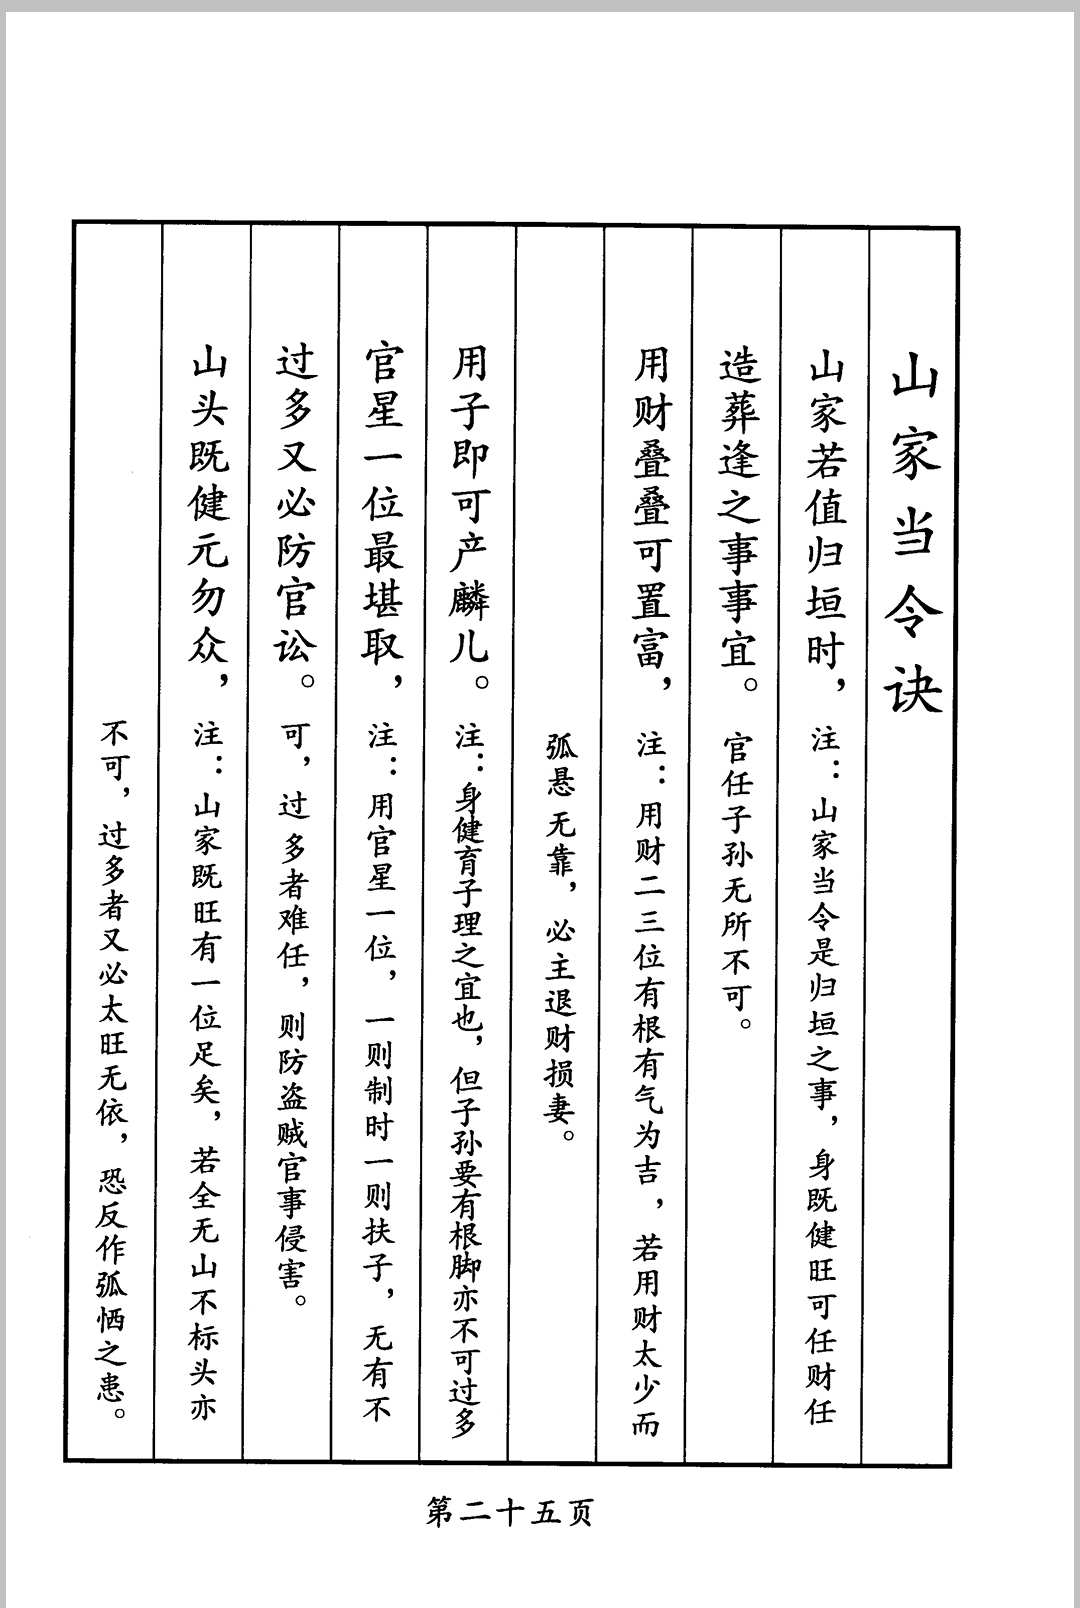 山家当令诀
山家若值归垣时，注：山家当令是归垣之事，身既健旺可任财任
造葬逢之事事宜。官任子孙无所不可。
用财叠叠可置富，注：用财二三位有根有气为吉，若用财太少而
孤悬无靠，必主退财损妻。
用子即可产麟儿。注：身健育子理之宜也，但子孙要有根脚亦不可过多
官星一位最堪取，注：用官星一位，一则制时一则扶子，无有不
过多又必防官讼。可，过多者难任，则防盗贼官事侵害。
山头既健元勿众，注：山家既旺有一位足矣，若全无山不标头亦
不可，过多者又必太旺无依，恐反作孤恓之患。
第二十五页